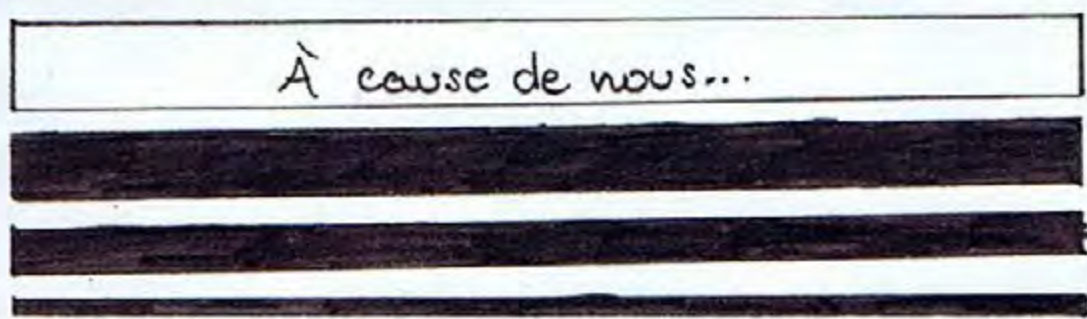 À cause de nous...